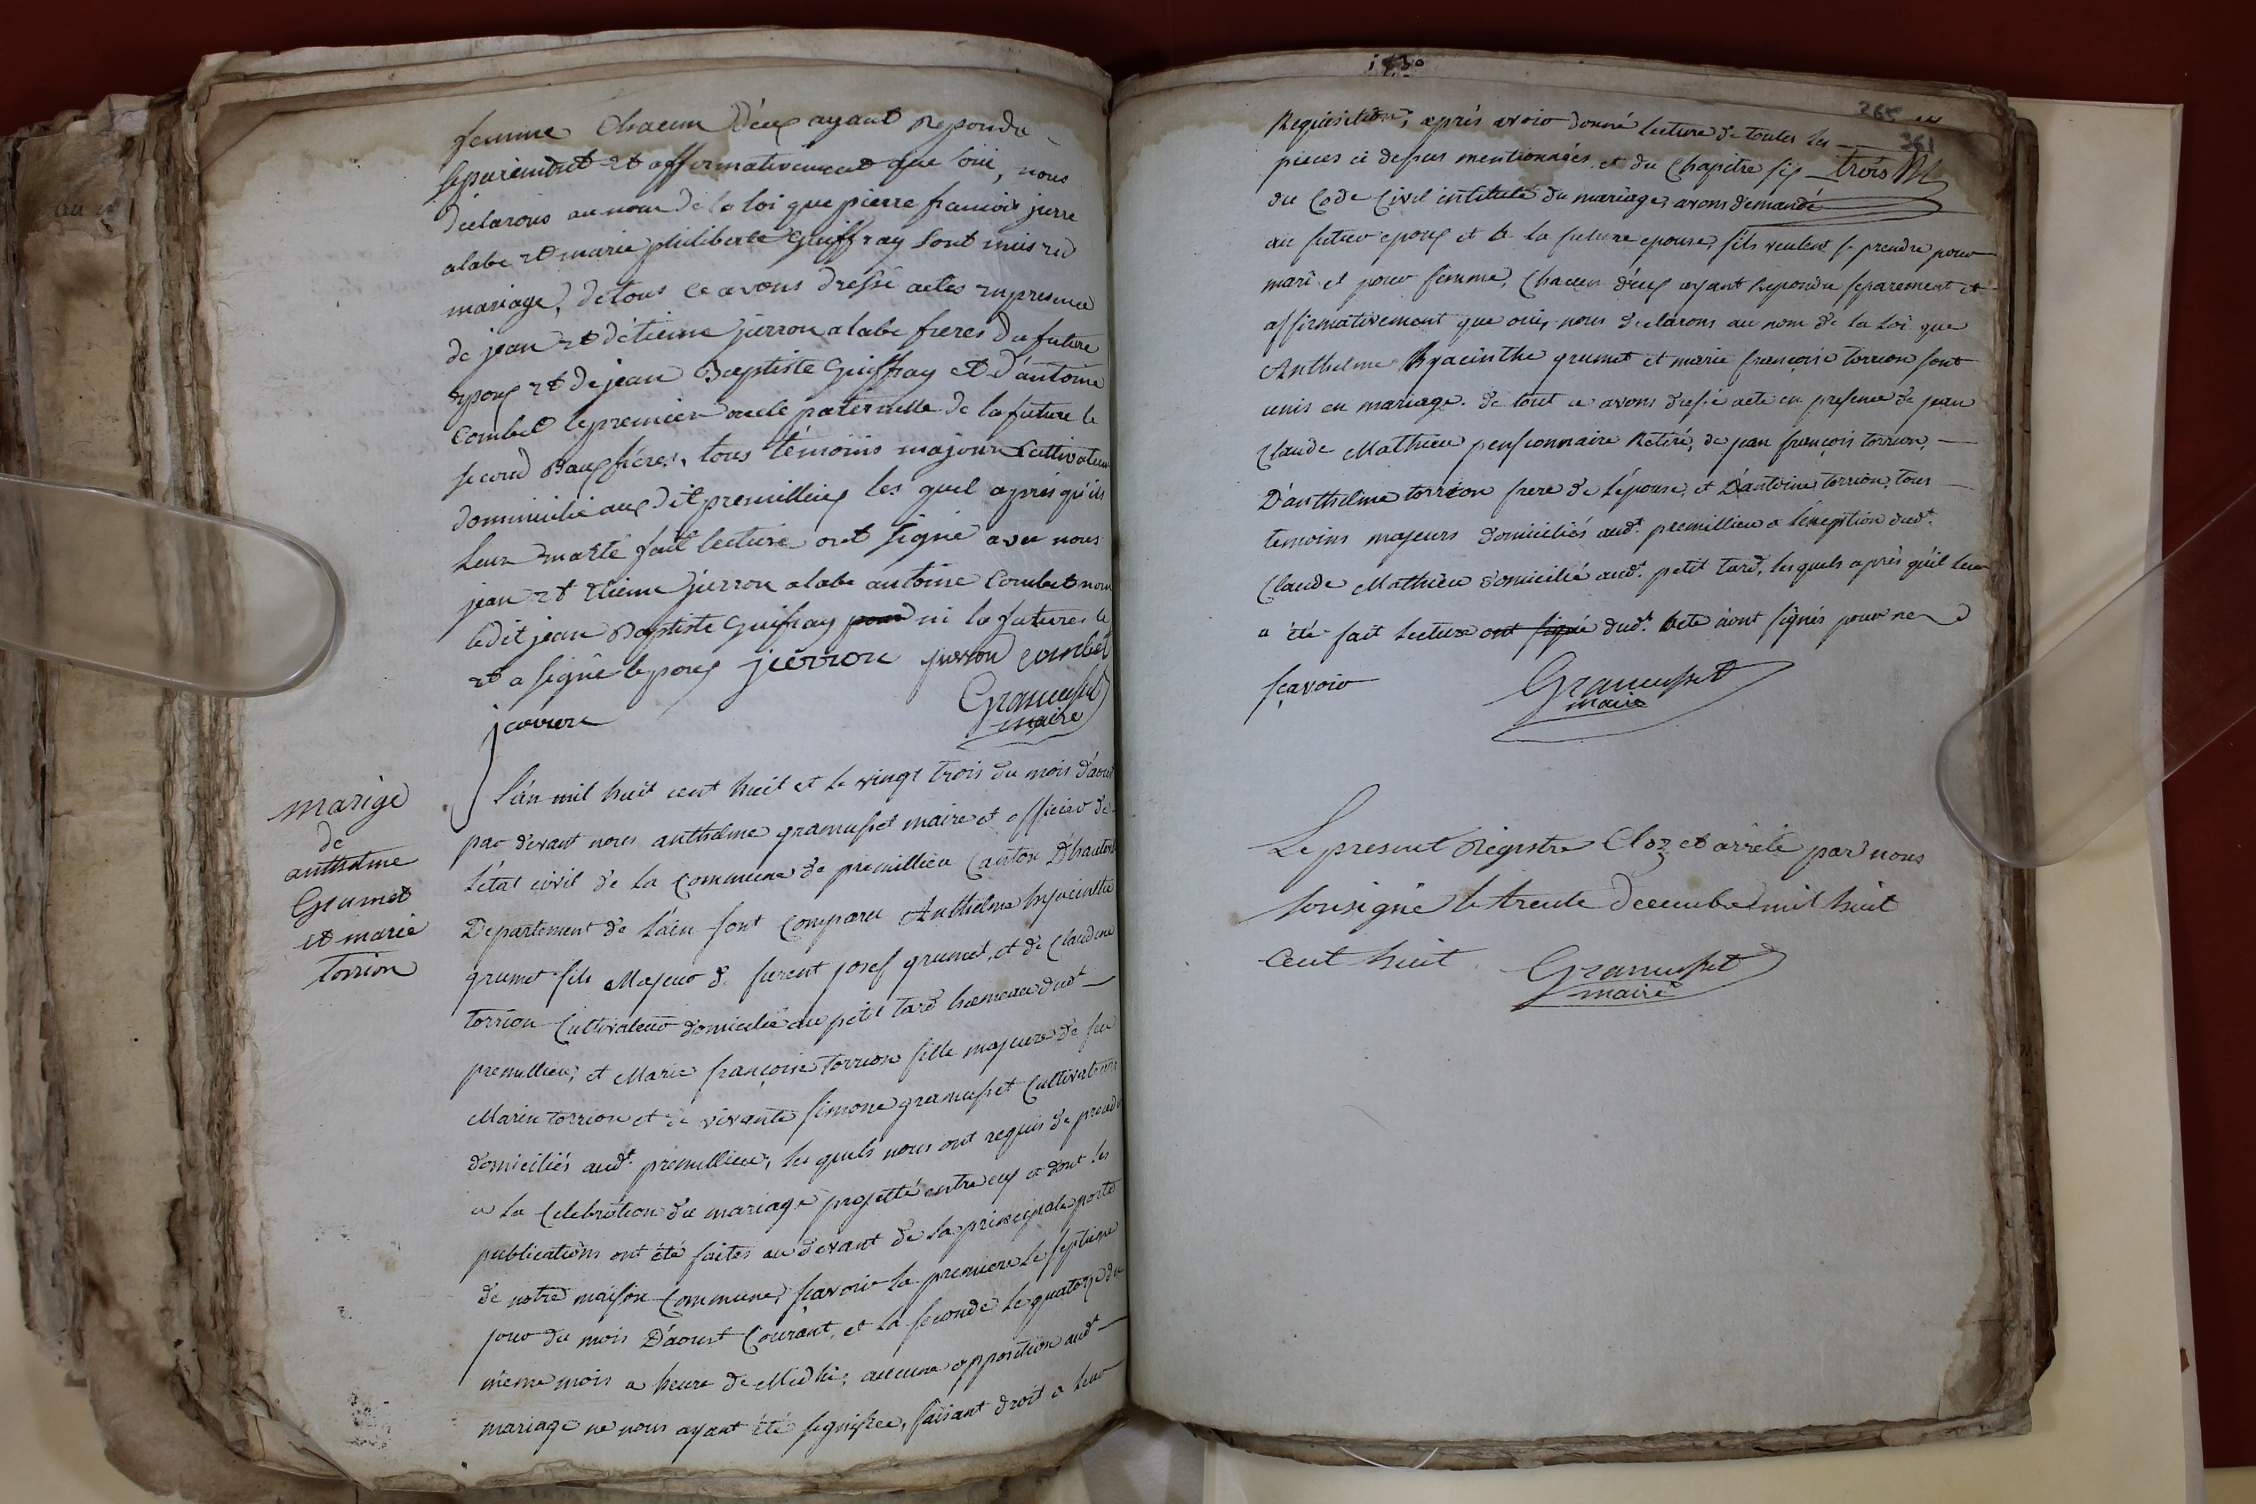 femme Chacun d'eux ayant Repondu
separément et affirmativement que oui, nous
déclarons au nom de la loi que pierre francois jierre
alabe et marie philiberte Guiffray sont unis en
mariage, de tous ce avons dressé actes en presence
de jean et d'étienne jierron alabe freres du future
epoux et de jean Baptiste Guiffray et d'antoine
Combet le premier oncle paternelle de la future le
second Beaux frères, tous témoins majours Cultivateur
domicilié aux dit premillieux les quel apres qu'ils
leur en a été fait lecture ont signé avec nous
jean et etienne jierron alabe antoine Combet non
ledit jean Baptiste Guifray pour ni la future le
et a signé lepoux jierron jierron combet
Gramusset
maire
jierron
marige
de
anthelme
Grumet
et marie
torrion
L'an mil huit cent huit et le vingt trois du mois d'aout
par devant nous anthelme gramusset maire et officier de
l'état civil de la Commune de premillieu Canton D'hauteville
Departement de L'ain sont Comparu Anthelme hyacinthe
grumet fils Majeur de furent josef grumet, et de Claudine
torrion Cultivateur domicilié au petit tard hameau dud.t
premillieu, et Marie françoise torrion fille majeure de feu
Marin torrion et de vivante simone gramusset Cultivateurs
domiciliés aud.t premillieu, les quels nous ont requis de procéder
a la Célébration du mariage projetté entre eux et dont les
publications ont été faites au devant de la principale porte
de notre maison Commune, sçavoir la premiere le septieme
jour du mois D'aoust Courant, et la seconde le quatorze du
même mois a heure de Midhi, aucune opposition aud.t
mariage ne nous ayant été signifiée, faisant droit a leur
1830
265
361
Requisition, après avoir donné lecture de toutes les
pieces ci dessus mentionnées et du Chapitre six trois
du Code Civil intitulé du mariage, avons demandé
au futur epoux et a la future epouse, s'ils veulent se prendre pour
mari et pour femme, Chacun d'eux ayant repondu separement et
affirmativement que oui, nous declarons au nom de la Loi que
Anthelme hyacinthe grumet et marie françoise torrion sont
unis en mariage. de tout ce avons dressé acte en presence de jean
Claude Mathieu pensionnaire Retiré, de jean françois torrion,
D'anthelme torrion frere de L'épouse, et D'antoine torrion, tous
temoins majeurs domiciliés aud.t premillieu a L'exception dud.t
Claude Mathieu domicilié aud.t petit tard, lesquels après qu'il leur
a été fait lecture ont signé dud.t acte n'ont signés pour ne
sçavoir
Gramusset
maire
Le present Régistre Cloz et arrêté par nous
sousigné le trente decembre mil huit
cent huit.
Gramusset
maire